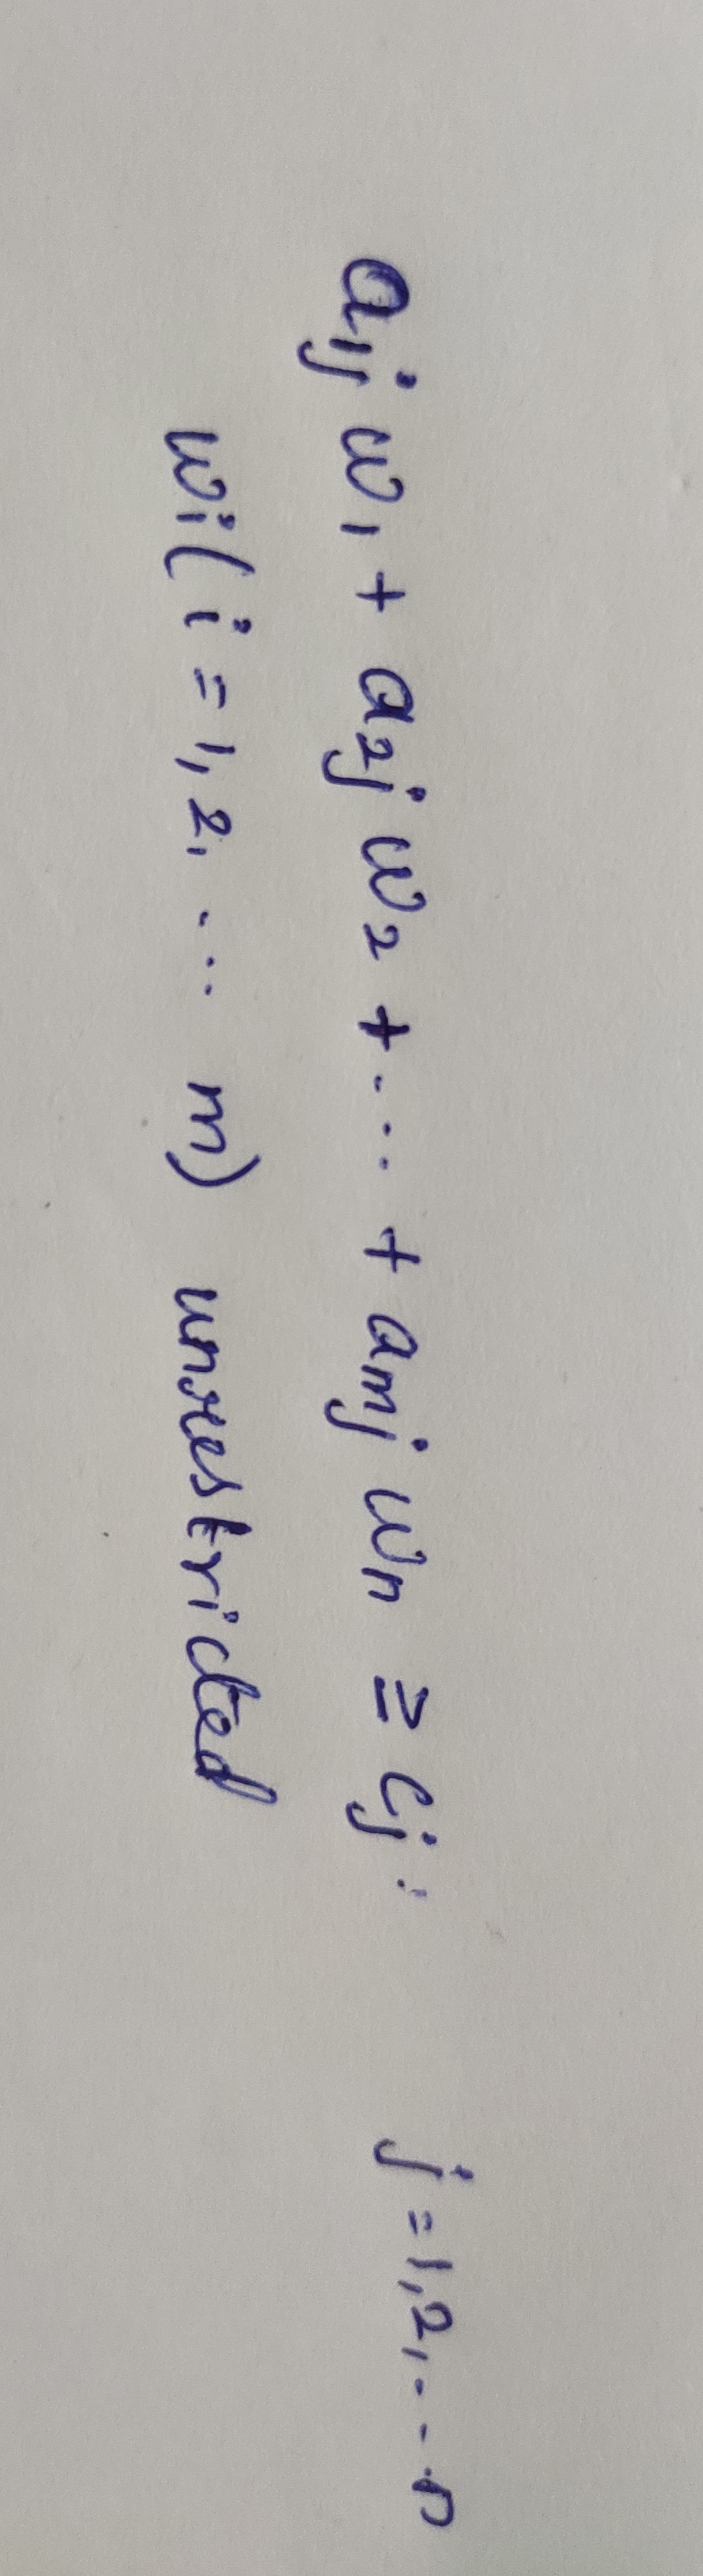 a₁ⱼ w₁ + a₂ⱼ w₂ + ... + aₘⱼ wₙ ≥ cⱼ ; j = 1, 2, ... n
wᵢ ( i = 1, 2, ... m) unrestricted